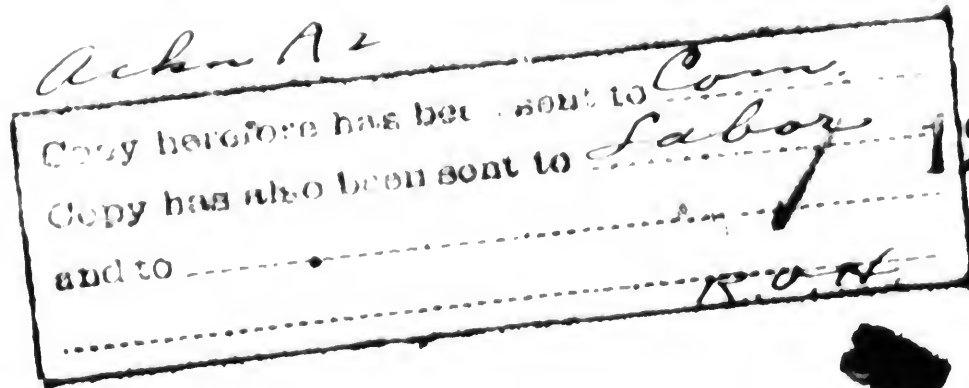 Ackn A2
Copy herefore has been sent to Com.
Copy has also been sent to Labor
and to
R.O.H.